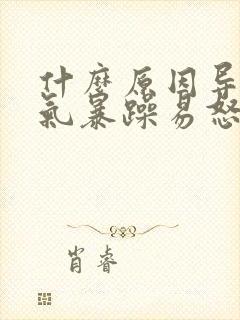 什麼原因导
氣暴躁易怒
肖睿